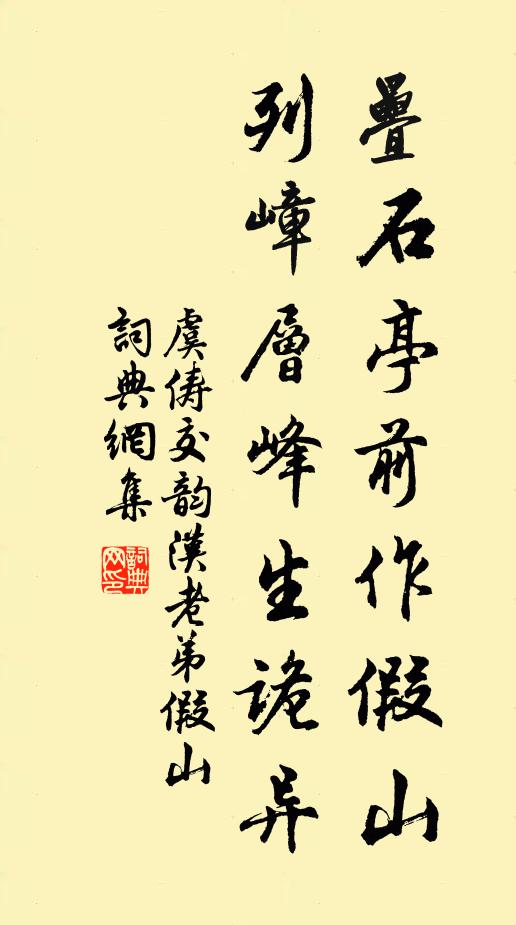 疊石亭前作假山
列嶂層峰生詭异
虞俦交韵漢老弟假山
詞典網集
詞典
网印